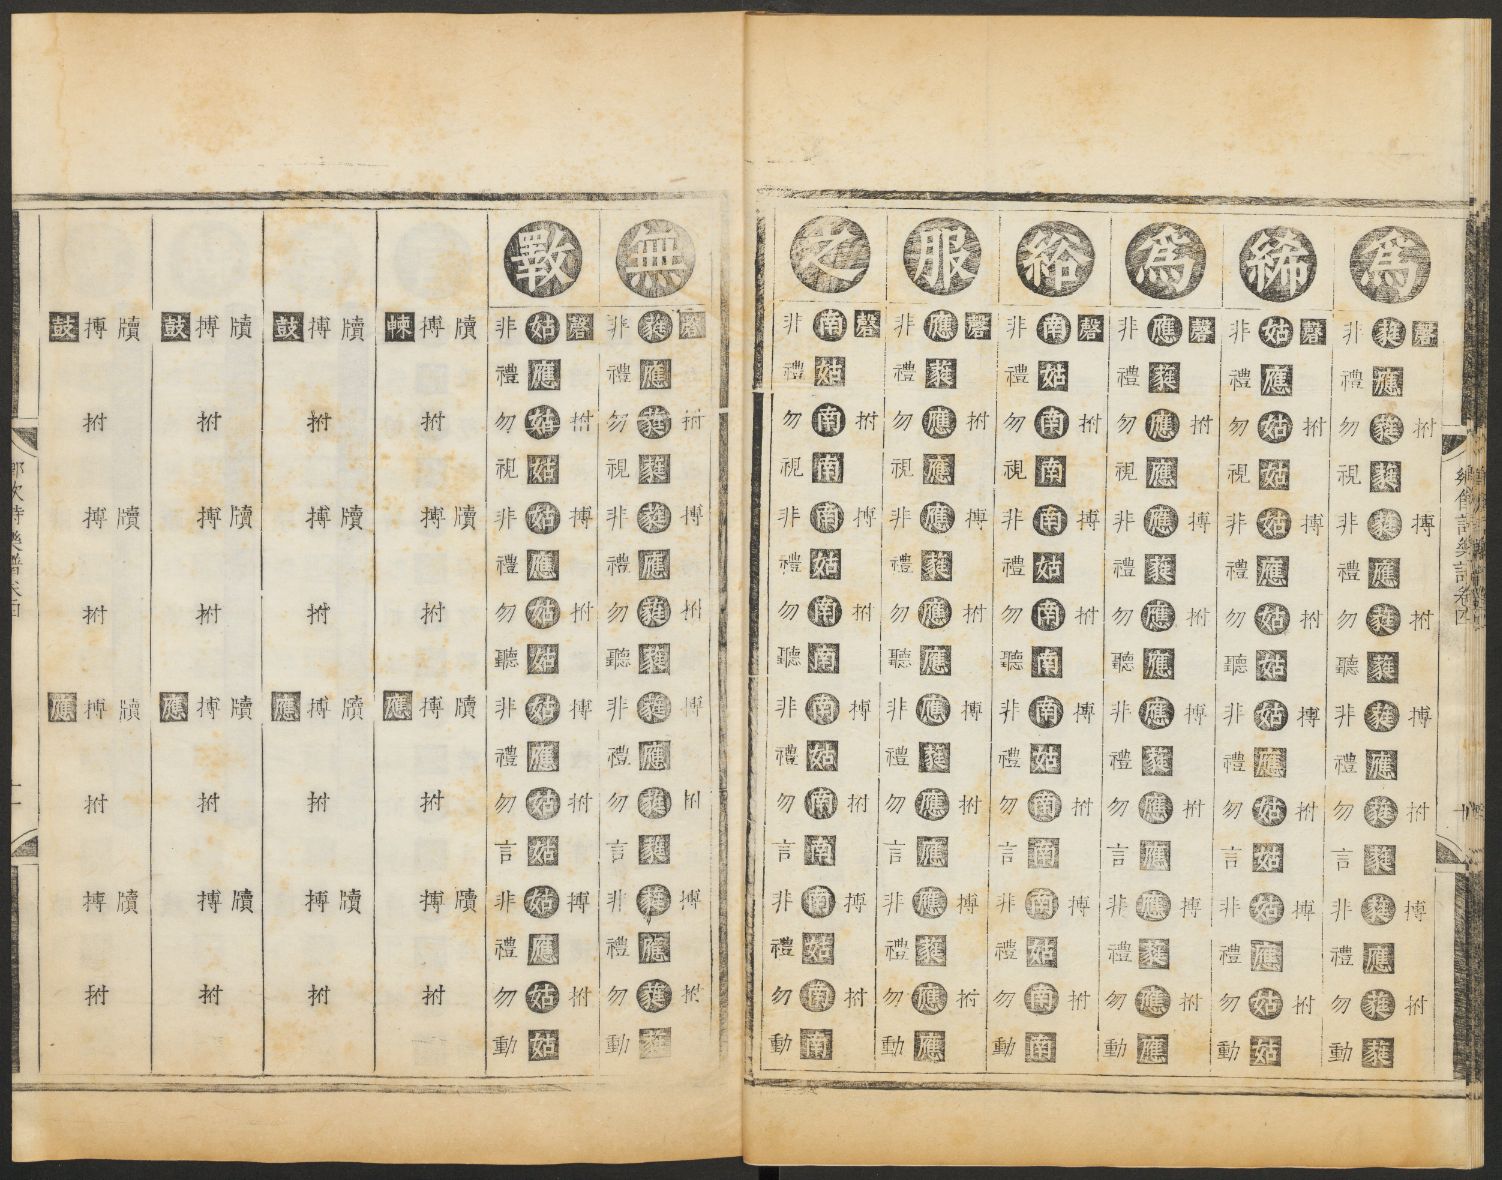 鄉飲詩樂譜卷四
十
為
磬拊搏拊搏拊搏拊
蕤應蕤蕤蕤應蕤蕤蕤應蕤蕤蕤應蕤蕤
非禮勿視非禮勿聽非禮勿言非禮勿動
絺
磬拊搏拊搏拊搏拊
姑應姑姑姑應姑姑姑應姑姑姑應姑姑
非禮勿視非禮勿聽非禮勿言非禮勿動
為
磬拊搏拊搏拊搏拊
應蕤應應應蕤應應應蕤應應應蕤應應
非禮勿視非禮勿聽非禮勿言非禮勿動
綌
磬拊搏拊搏拊搏拊
南姑南南南姑南南南姑南南南姑南南
非禮勿視非禮勿聽非禮勿言非禮勿動
服
磬拊搏拊搏拊搏拊
應蕤應應應蕤應應應蕤應應應蕤應應
非禮勿視非禮勿聽非禮勿言非禮勿動
之
磬拊搏拊搏拊搏拊
南姑南南南姑南南南姑南南南姑南南
非禮勿視非禮勿聽非禮勿言非禮勿動
無
磬拊搏拊搏拊搏拊
蕤應蕤蕤蕤應蕤蕤蕤應蕤蕤蕤應蕤蕤
非禮勿視非禮勿聽非禮勿言非禮勿動
斁
磬拊搏拊搏拊搏拊
姑應姑姑姑應姑姑姑應姑姑姑應姑姑
非禮勿視非禮勿聽非禮勿言非禮勿動
牘牘牘牘
搏拊搏拊搏拊搏拊
應
牘牘牘牘
搏拊搏拊搏拊搏拊
鼓應
牘牘牘牘
搏拊搏拊搏拊搏拊
鼓應
牘牘牘牘
搏拊搏拊搏拊搏拊
鼓應